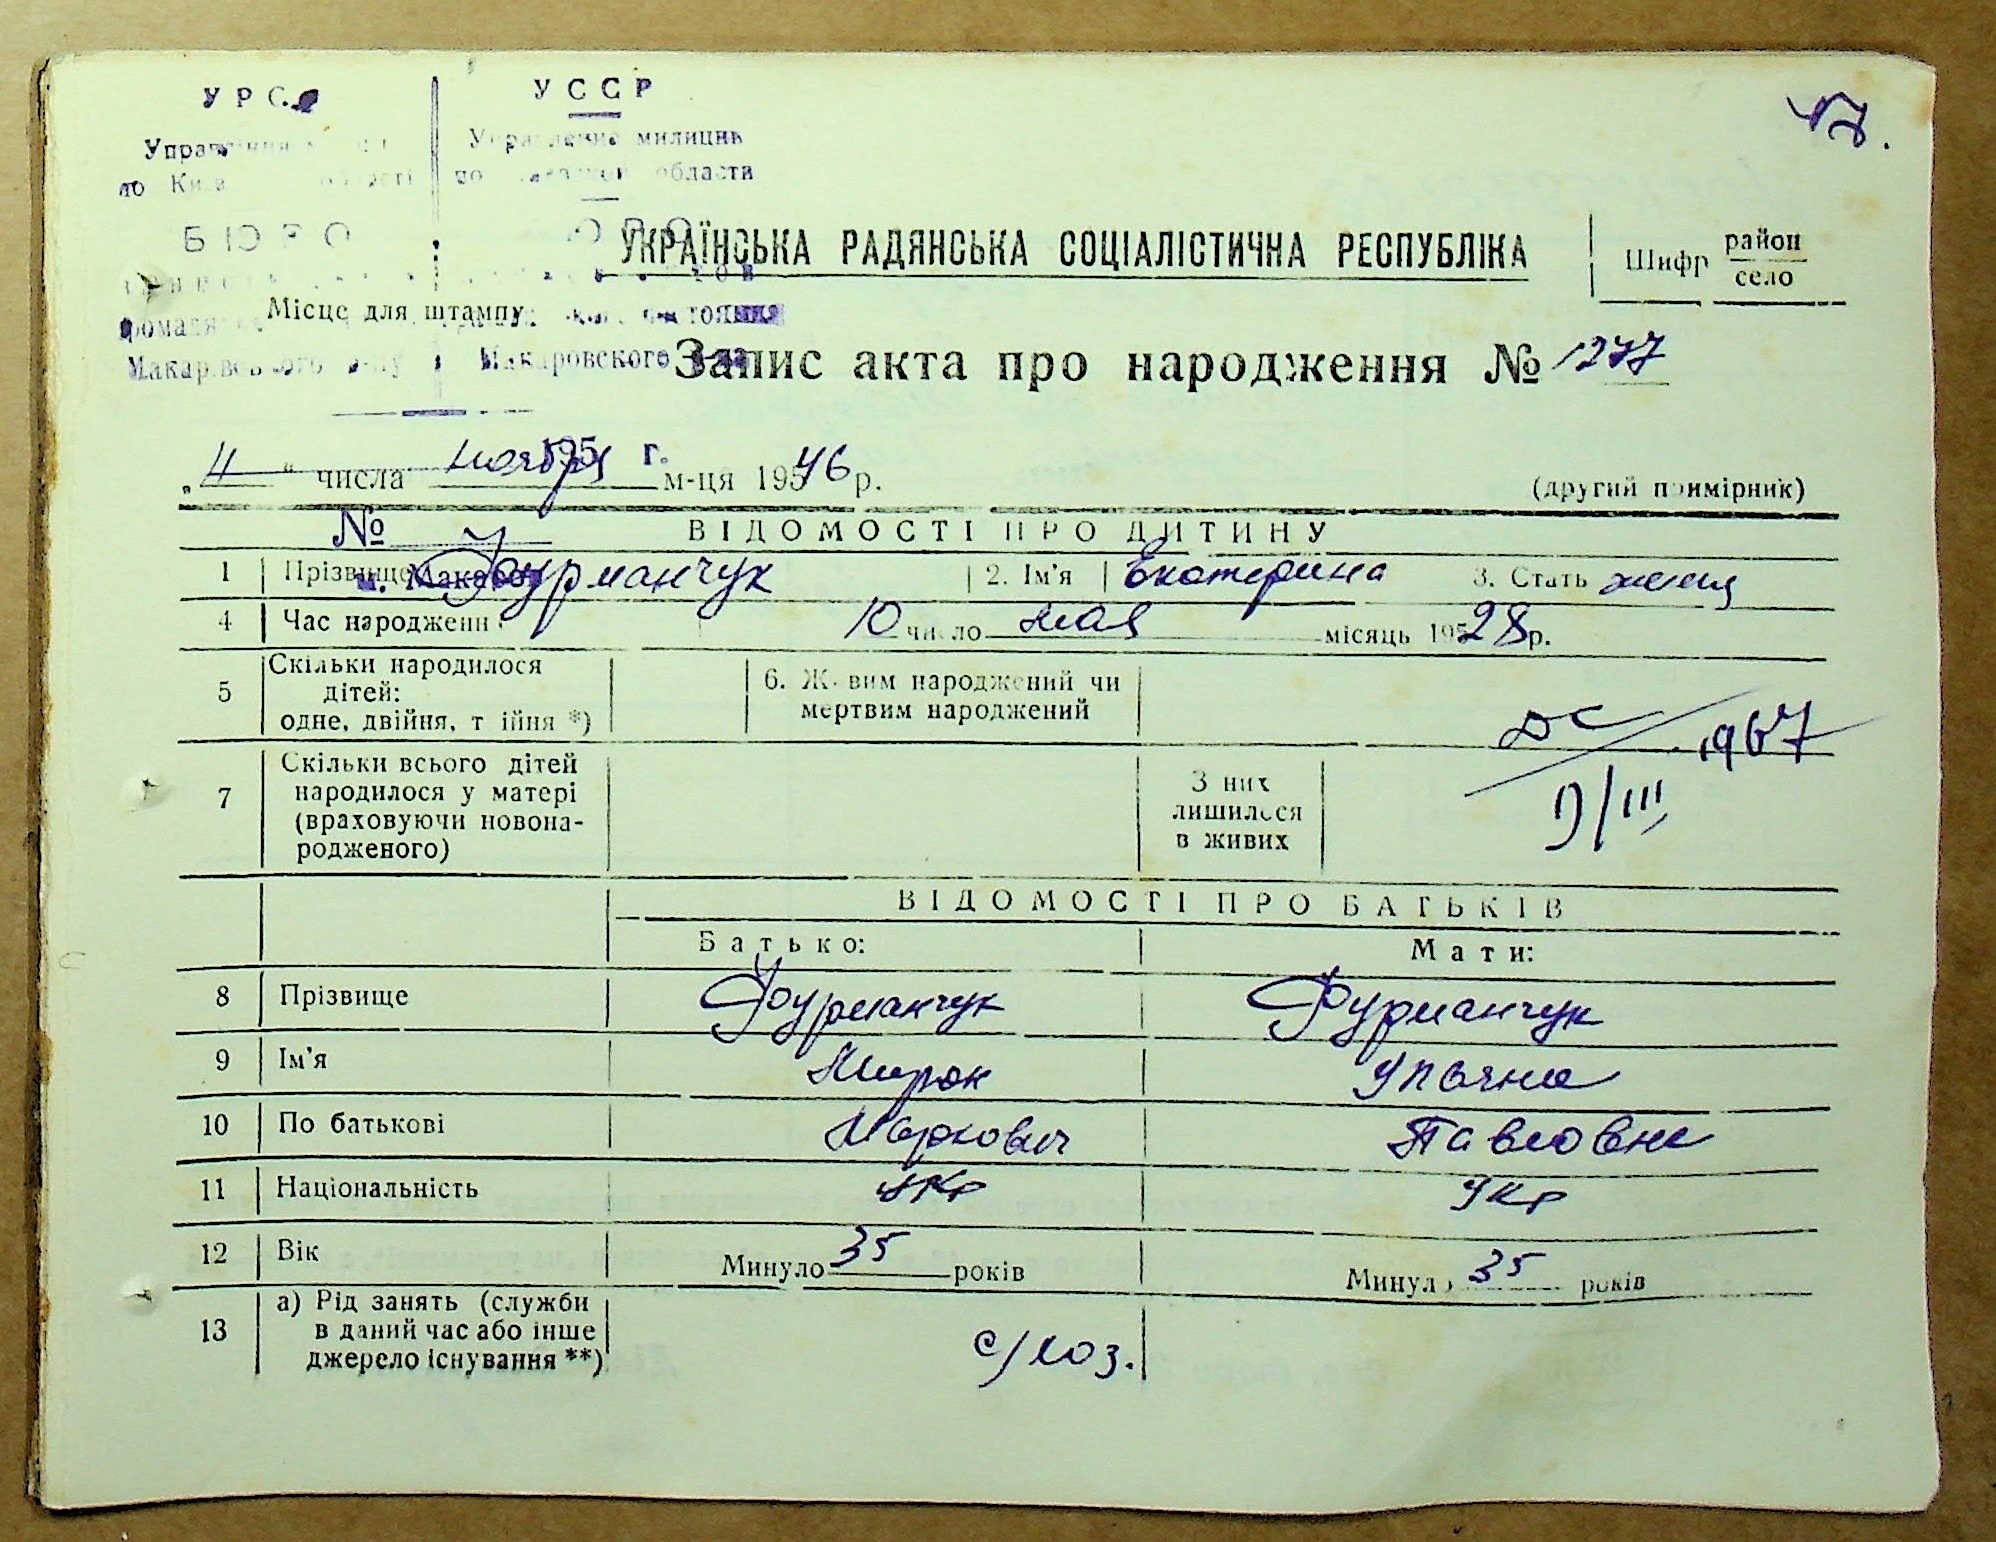 У Р С
У С С Р
Управление милиции
по области
БЮРО
Макаровского
17.
УКРАЇНСЬКА РАДЯНСЬКА СОЦІАЛІСТИЧНА РЕСПУБЛІКА
Шифр район
село
Місце для штампу
Запис акта про народження № 1277
195 г.
„4“ числа ноября м-ця 1946 р.
(другий примірник)
№
ВІДОМОСТІ ПРО ДИТИНУ
м. Макаров
1 Прізвище Фурманчук 2. Ім'я Екатерина 3. Стать женск
4 Час народження 10 число мая місяць 1928 р.
5 Скільки народилося
дітей:
одне, двійня, трійня *)
6. Живим народжений чи
мертвим народжений
1967
7 Скільки всього дітей
народилося у матері
(враховуючи новона-
родженого)
З них
лишилося
в живих
9/III
ВІДОМОСТІ ПРО БАТЬКІВ
Батько: Мати:
8 Прізвище Фурманчук Фурманчук
9 Ім'я Мирон
10 По батькові Маркович Павловна
11 Національність укр укр
12 Вік Минуло 35 років Минуло 35 років
13 а) Рід занять (служби
в даний час або інше
джерело існування **)
с/хоз.